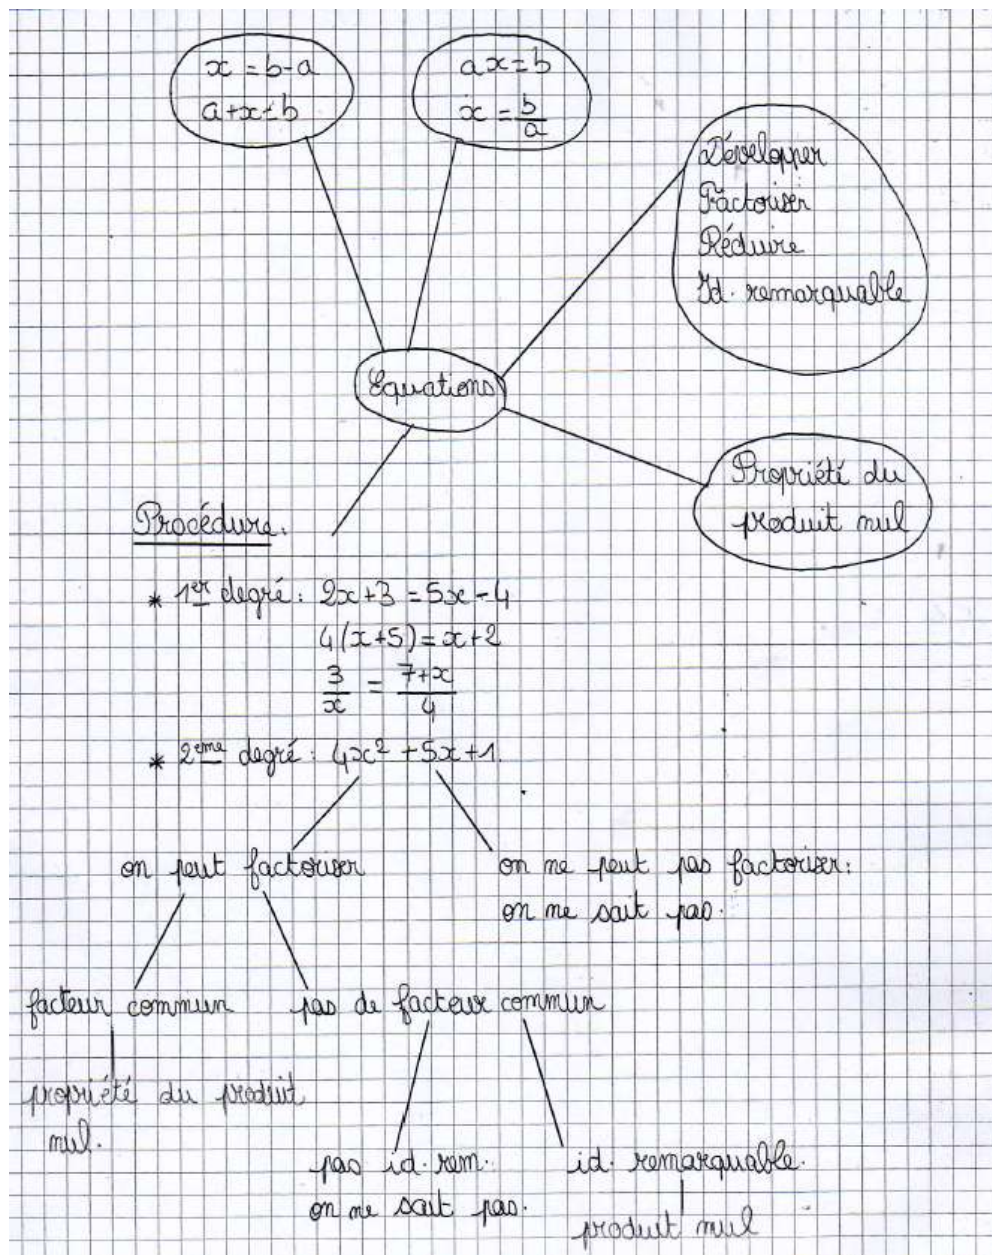 x = b-a
a+x=b
ax=b
x = b/a
Développer
Factoriser
Réduire
Id. remarquable
Equations
Propriété du
produit nul
Procédure.
* 1er degré : 2x+3 = 5x-4
4(x+5) = x+2
3/x = 7+x/4
* 2eme degré : 4x² + 5x + 1.
on peut factoriser
on ne peut pas factoriser:
on ne sait pas.
facteur commun
pas de facteur commun
propriété du produit
nul.
pas id. rem.
on ne sait pas.
id. remarquable.
produit nul